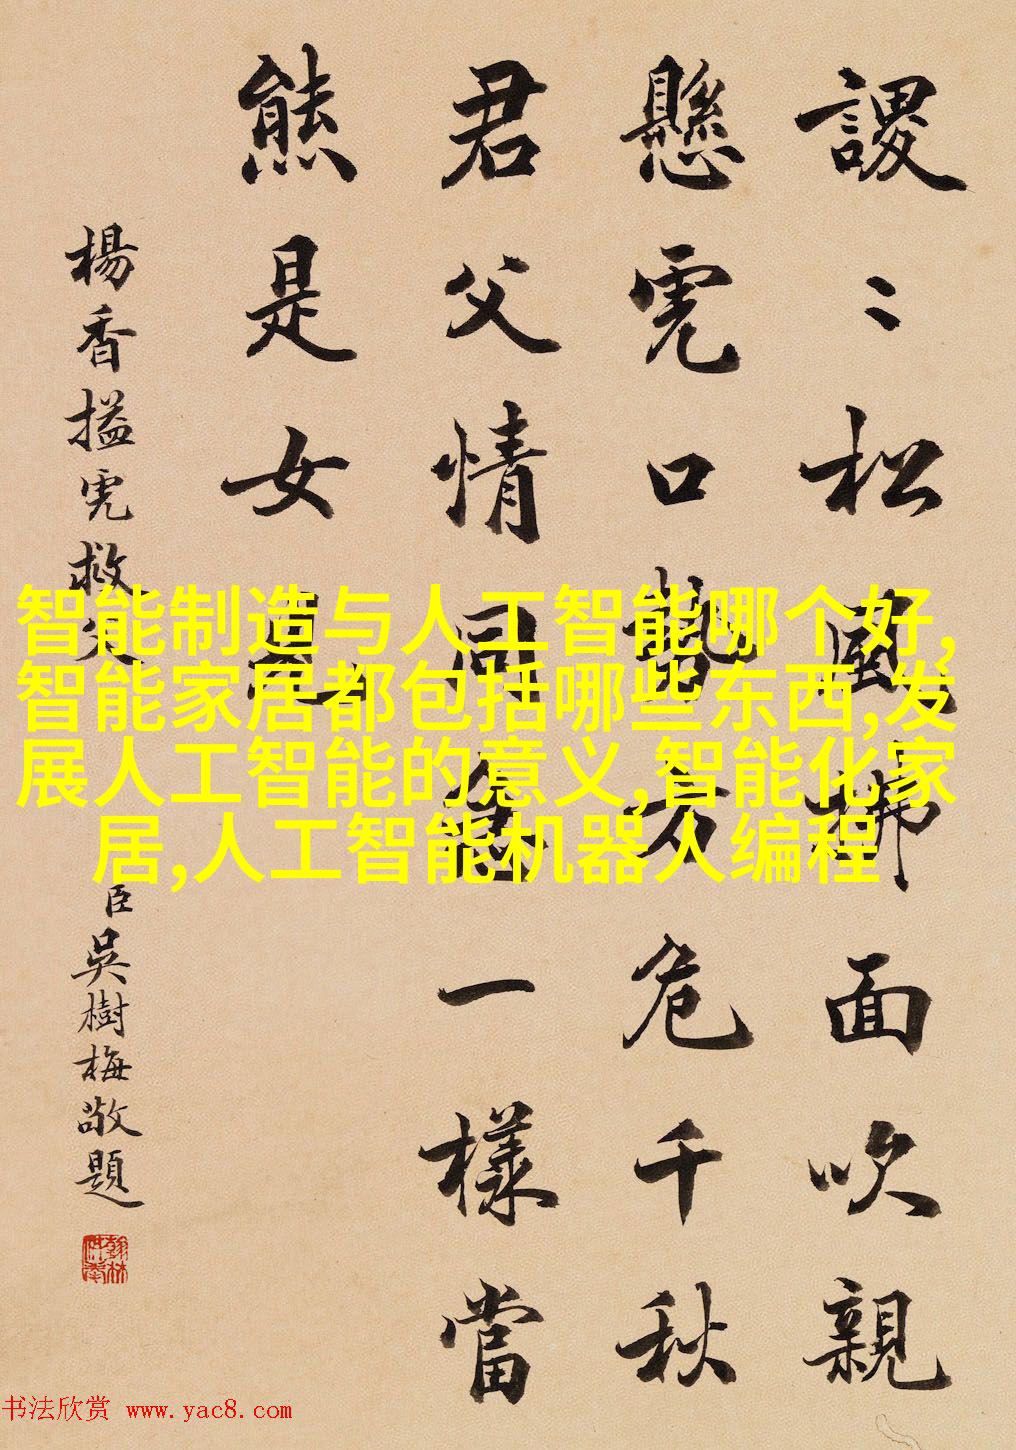 謖〻松風拂面吹親
懸虎口勢方危千秋
君父情同急一樣當
熊是女兒
楊香搤虎救父
臣吳樹梅敬題
翰林供奉
智能制造与人工智能哪个好,
智能家居都包括哪些东西,发
展人工智能的意义,智能化家
居,人工智能机器人编程
书法欣赏 www.yac8.com